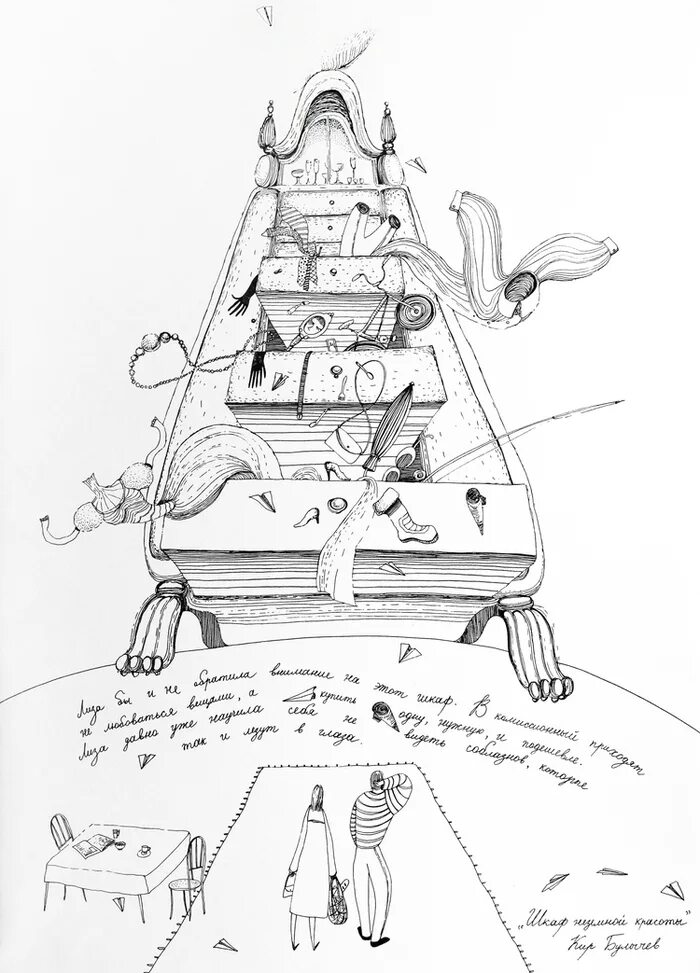 Лиза бы и не обратила внимание на этот шкаф. В комиссионный приходят
не любоваться вещами, а купить одну, нужную, и подешевле.
Лиза давно уже научила себя не видеть соблазнов, которые
так и лезут в глаза.
„Шкаф неземной красоты"
Кир Булычев